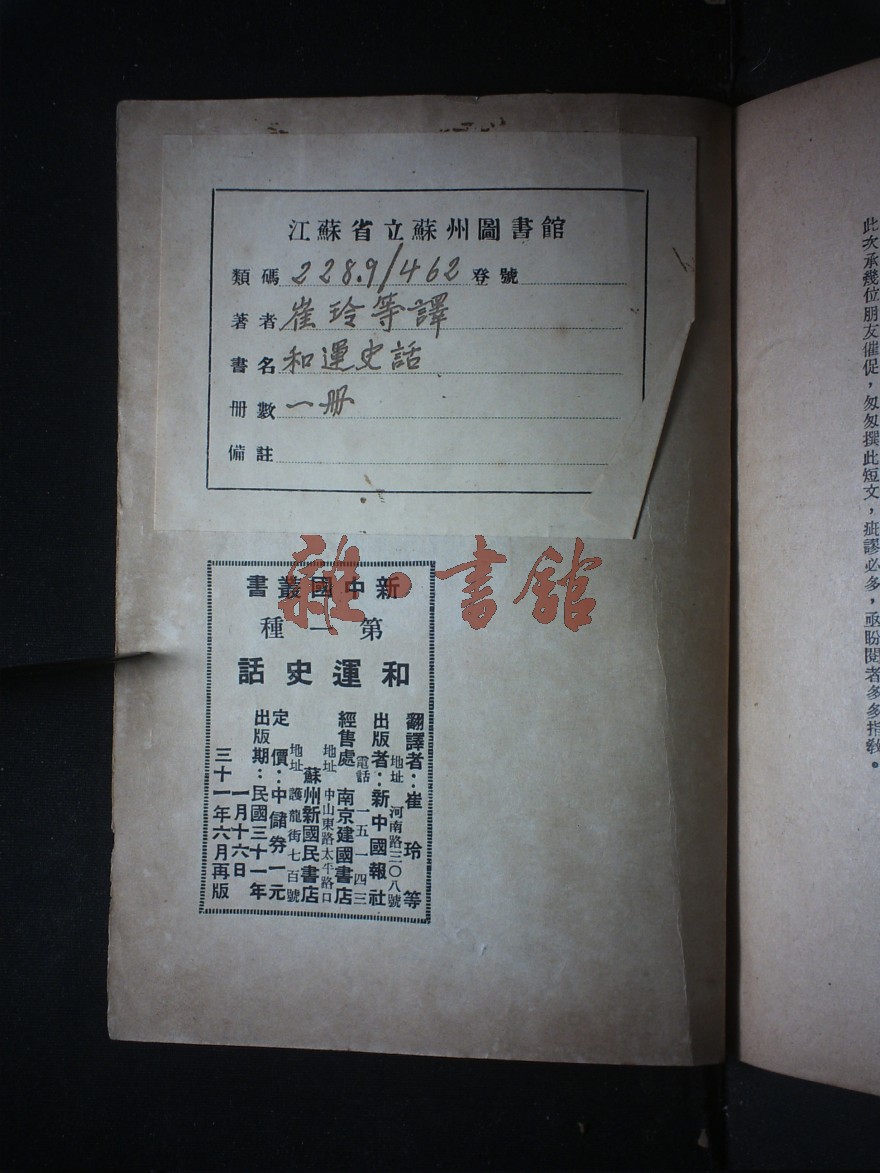 江蘇省立蘇州圖書館
類碼 228.9/462 登號
著者 崔玲等譯
書名 和運史話
册數 一册
備註
雜·書館
新中國叢書
第一種
和運史話
翻譯者：崔玲等
地址 河南路三〇八號
出版者：新中國報社
電話 一五一四三
經售處 南京建國書店
地址 中山東路太平路口
蘇州新國民書店
地址 護龍街七百號
定價：中儲券一元
出版期：民國三十一年
一月十六日
三十一年六月再版
此次承幾位朋友催促，匆匆撰此短文，疵謬必多，亟盼閱者多多指教。